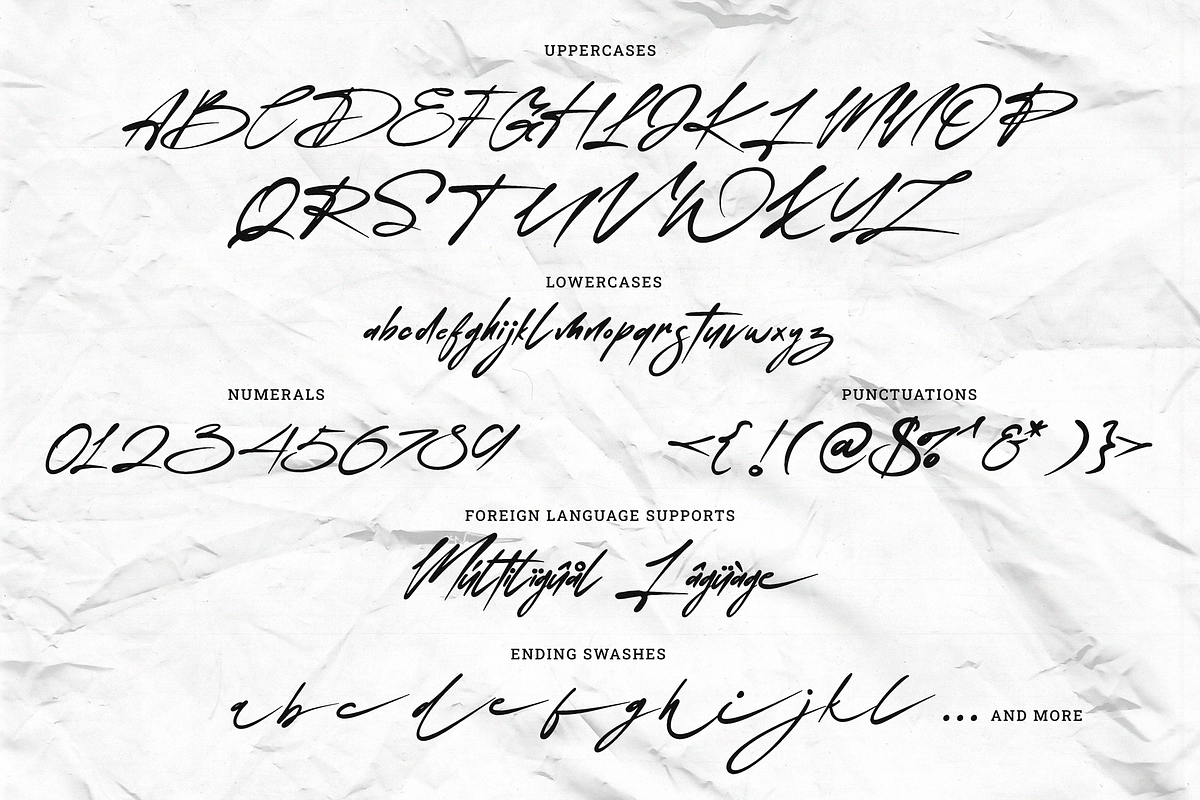 UPPERCASES
ABCDEFGHIJKLMNOP
QRSTUVWXYZ
LOWERCASES
abcdefghijklmnopqrstuvwxyz
NUMERALS
0123456789
PUNCTUATIONS
<{!(@$%^&*)}>
FOREIGN LANGUAGE SUPPORTS
Múltitïgûål Lâgüàge
ENDING SWASHES
a b c d e f g h i j k l ... AND MORE